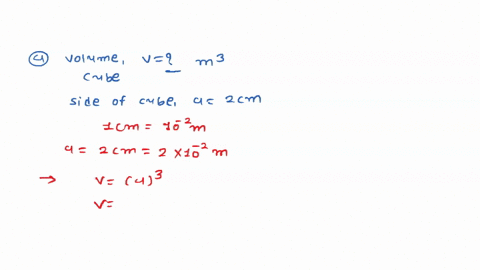 (a) volume, v=? m³
cube
side of cube, a= 2cm
1cm= 10⁻²m
a= 2cm= 2×10⁻²m
→ v= (a)³
v=